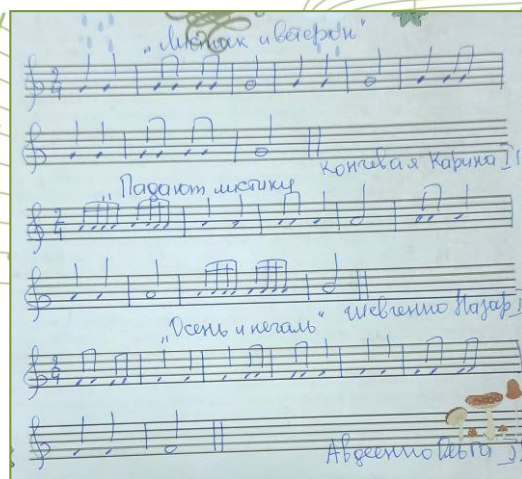 „Листик и ветерок"
2/4
Концевая Карина I
„Падают листики
2/4
Шевченко Назар I
„Осень и печаль"
2/4
Авдеенко Ольга